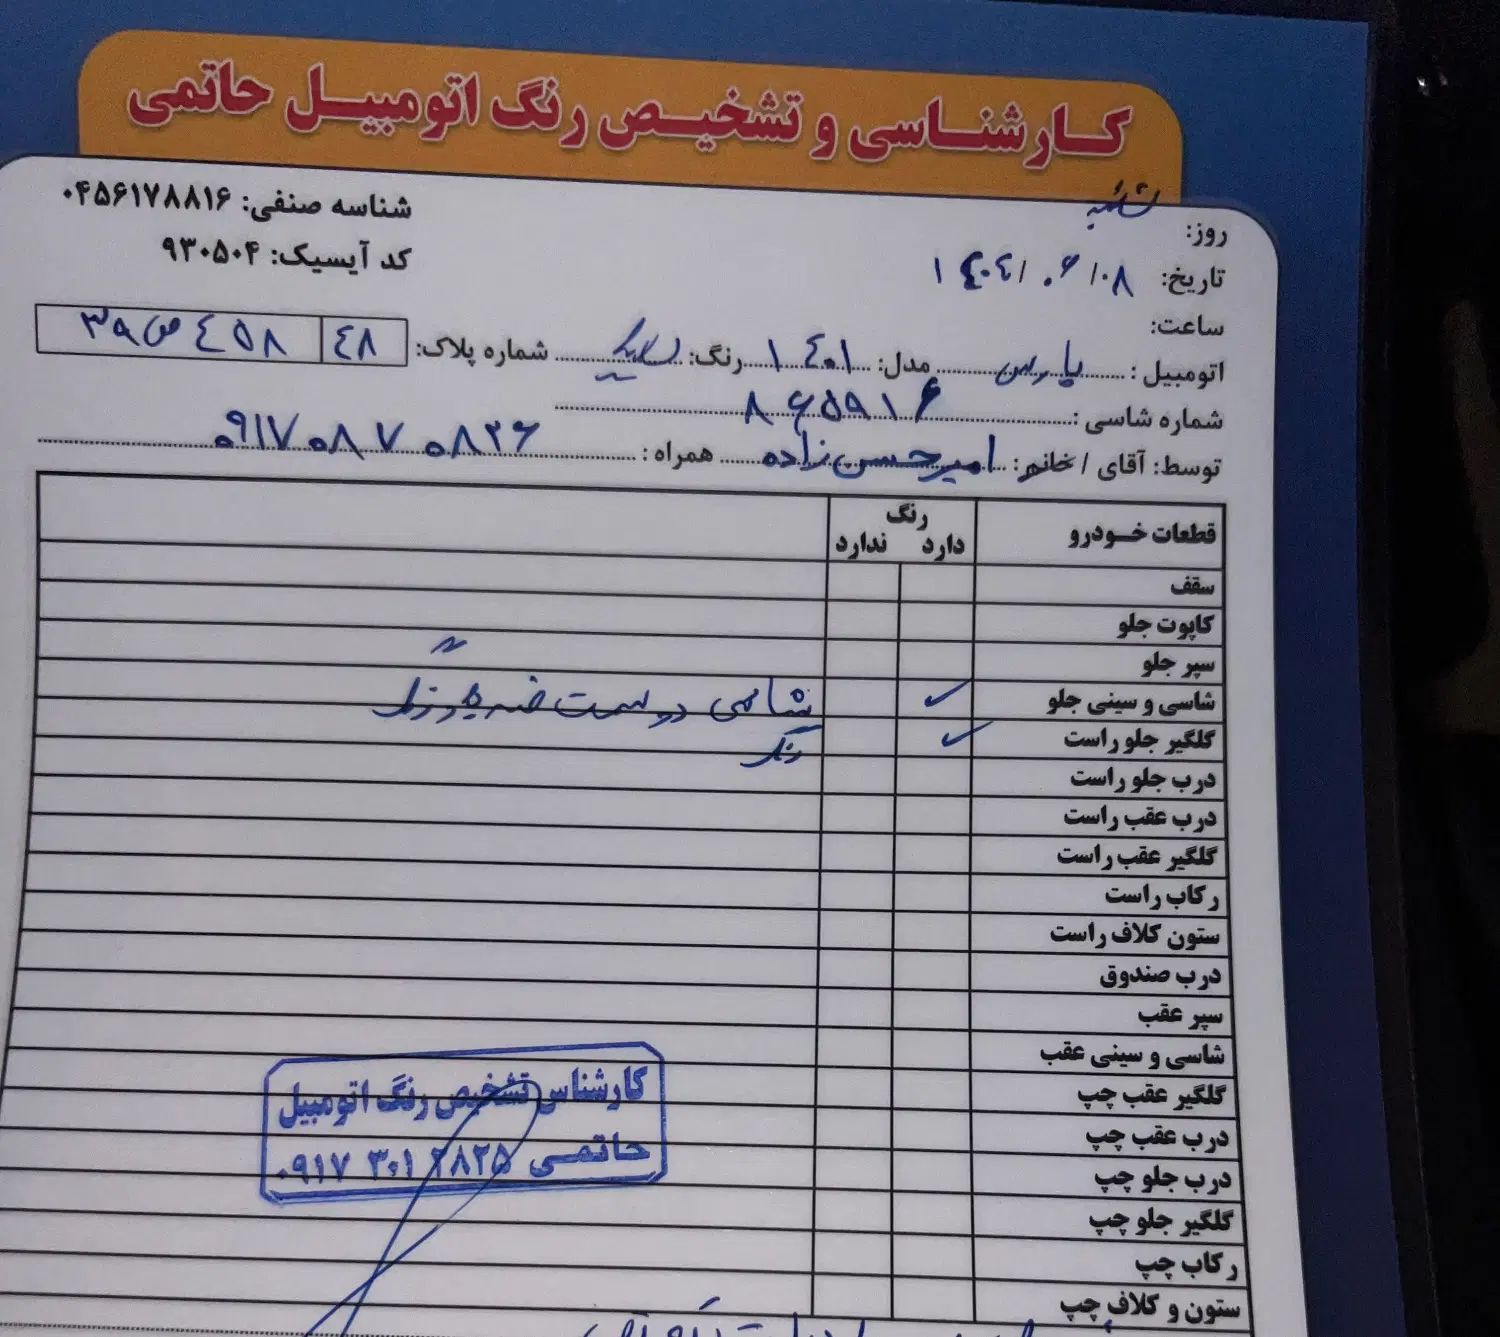 کارشناسی و تشخیص رنگ اتومبیل حاتمی
شناسه صنفی: ۰۴۵۶۱۷۸۸۱۶
کد آیسیک: ۹۳۰۵۰۴
روز: شنبه
تاریخ: ۱۴۰۴/۰۶/۰۸
ساعت:
اتومبیل: پارس مدل: ۱۴۰۱ رنگ: شماره پلاک: ۴۸ ۴۵۸ ص ۳۹
شماره شاسی: ۸۶۵۹۱۶
توسط: آقای / خانم: امیرحسن‌زاده همراه: ۰۹۱۷۰۸۷۰۸۲۶
قطعات خودرو رنگ
دارد ندارد
سقف
کاپوت جلو
سپر جلو
شاسی و سینی جلو ✓ شاسی دو سمت ضربه و
گلگیر جلو راست ✓ رنگ
درب جلو راست
درب عقب راست
گلگیر عقب راست
رکاب راست
ستون کلاف راست
درب صندوق
سپر عقب
شاسی و سینی عقب
گلگیر عقب چپ
درب عقب چپ
درب جلو چپ
گلگیر جلو چپ
رکاب چپ
ستون و کلاف چپ
کارشناس تشخیص رنگ اتومبیل
حاتمی ۰۹۱۷ ۳۰۱ ۲۸۲۵